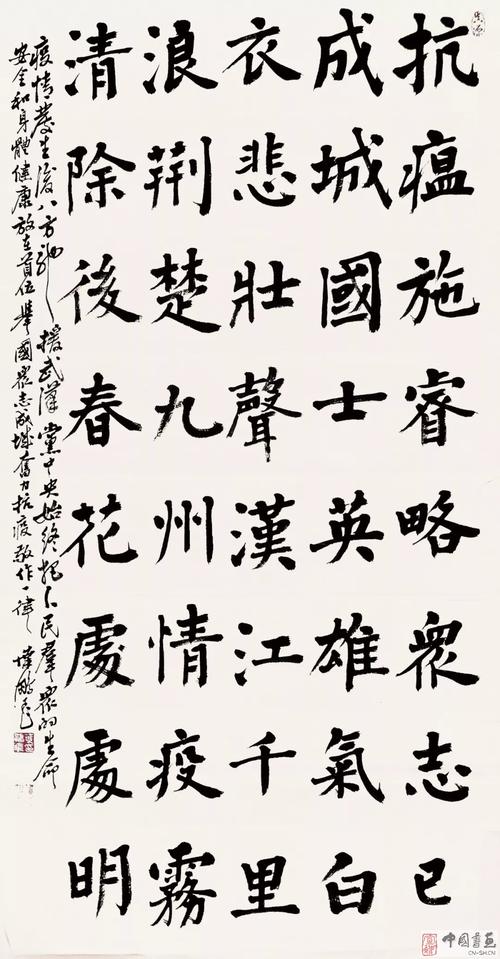 抗瘟施睿略眾志已
成城國士英雄氣白
衣悲壯聲漢江千里
浪荆楚九州情疫霧
清除後春花處處明
疫情發生後八方馳援武漢黨中央始終把人民群眾的生命
安全和身體健康放在首位舉國眾志成城奮力抗疫敬作一律
中國書画
CN-SH.CN